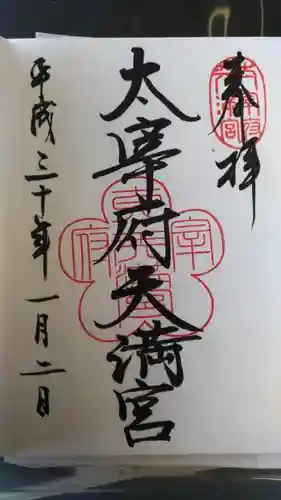 奉拝
太宰府天満宮
平成三十年一月二日